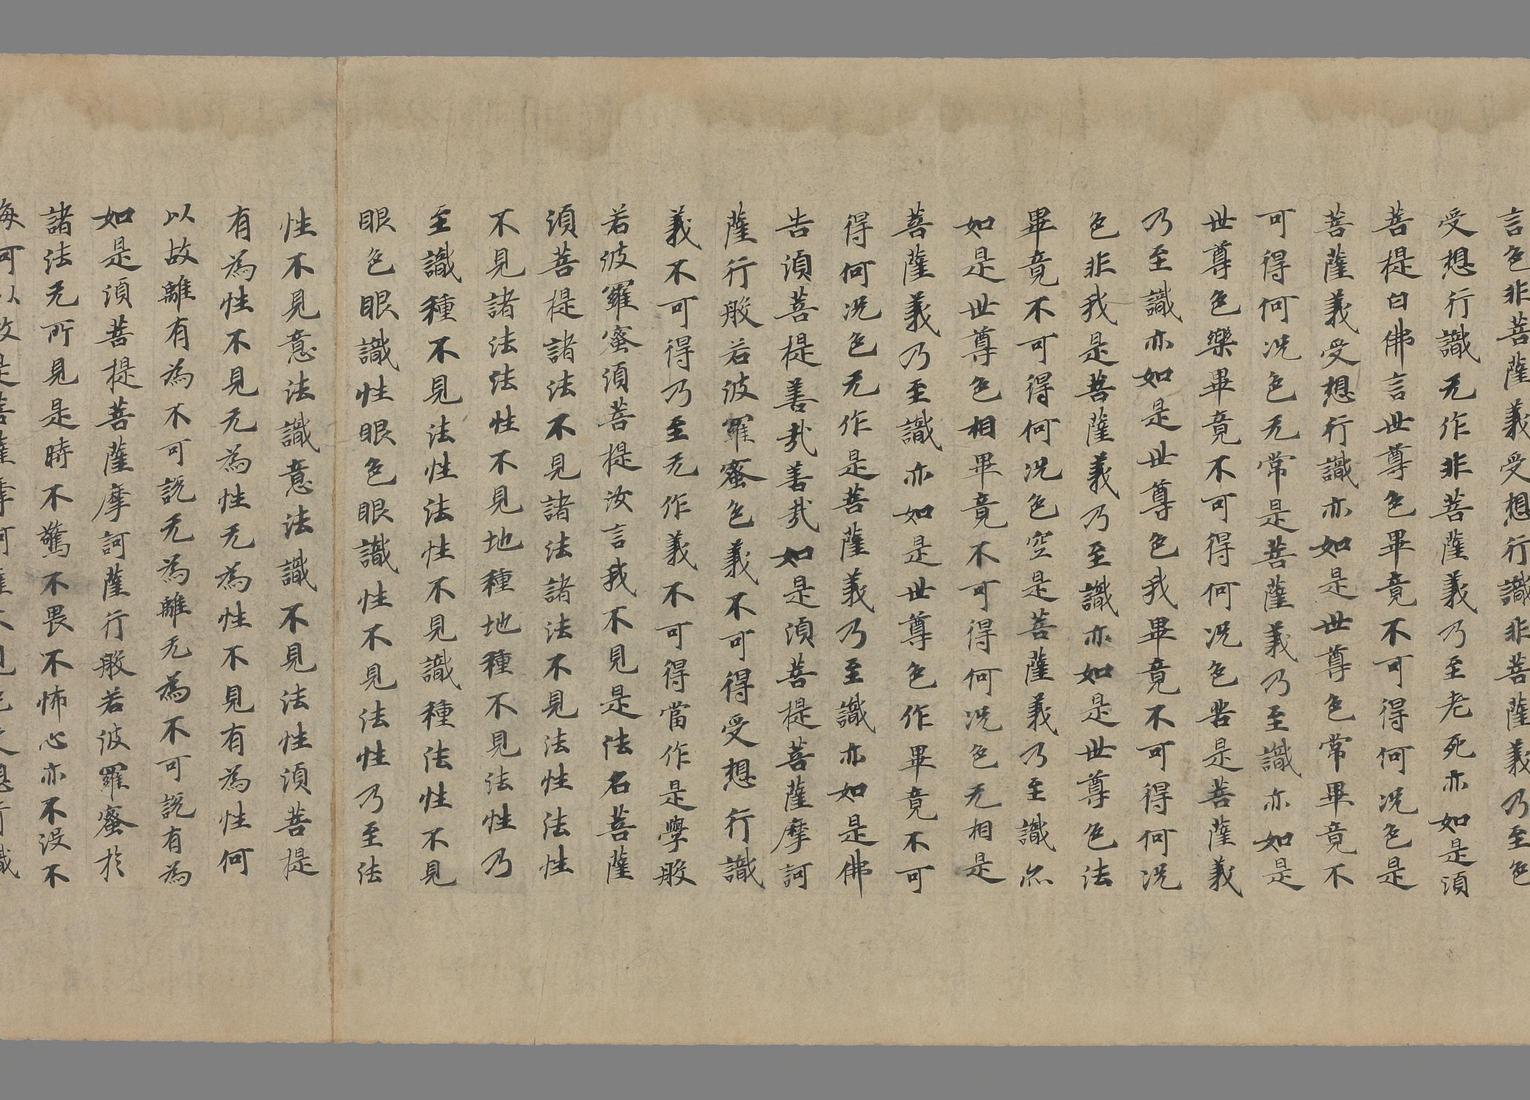 言色非菩薩義受想行識非菩薩義乃至色
受想行識无作非菩薩義乃至老死亦如是須
菩提白佛言世尊色畢竟不可得何況色是
菩薩義受想行識亦如是世尊色常畢竟不
可得何況色无常是菩薩義乃至識亦如是
世尊色樂畢竟不可得何況色苦是菩薩義
乃至識亦如是世尊色我畢竟不可得何況
色非我是菩薩義乃至識亦如是世尊色法
畢竟不可得何況色空是菩薩義乃至識亦
如是世尊色相畢竟不可得何況色无相是
菩薩義乃至識亦如是世尊色作畢竟不可
得何況色无作是菩薩義乃至識亦如是佛
告須菩提善哉善哉如是須菩提菩薩摩訶
薩行般若波羅蜜色義不可得受想行識
義不可得乃至无作義不可得當作是學般
若波羅蜜須菩提汝言我不見是法名菩薩
須菩提諸法不見諸法諸法不見法性法性
不見諸法法性不見地種地種不見法性乃
至識種不見法性法性不見識種法性不見
眼色眼識性眼色眼識性不見法性乃至法
性不見意法識意法識不見法性須菩提
有為性不見无為性无為性不見有為性何
以故離有為不可說无為離无為不可說有為
如是須菩提菩薩摩訶薩行般若波羅蜜於
諸法无所見是時不驚不畏不怖心亦不沒不
悔何以故是菩薩摩訶薩不見色受想行識